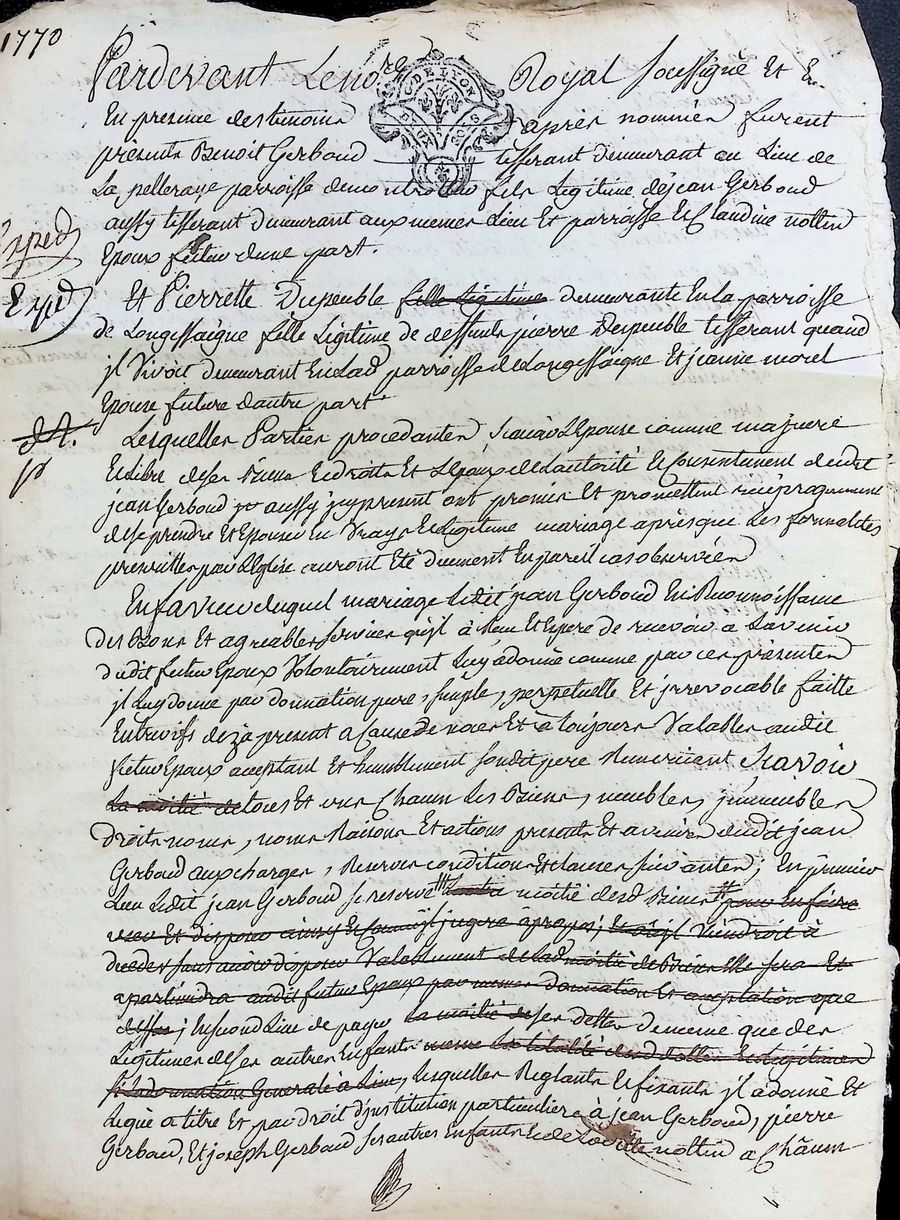 1770
Pardevant Lenore Royal soussigné Et
G. DE LYON
En presence destemoins après nommés furent
présents Benoit Gerboud tisserant demeurant au Lieu de
La pelleraye parroisse de fils Legitime dejean Gerboud
aussy tisserant demeurant aux memes Lieu Et parroisse Et Claudine nottin
Exped
Epoux futur dune part.
Exped
Et Pierrette Dupeuble fille Legitime demeurante En La parroisse
de Longessaigne fille Legitime de deffunts pierre Dupeuble tisserant quand
jl Vivoit demeurant En Lad parroisse de Longessaigne Et jeanne morel
Epouse future dautre part.
Lesquelles Parties procedantes scavoir LEpouse comme majeure
Et Libre deses Biens Et droits Et LEpoux de Lautorité Et Consentement dudit
jean Gerboud jcy aussy present ont promis Et promettent réciproquement
de se prendre Et Epouser En Vray Et Legitime mariage après que Les formalités
prescrittes par LEglise auront Eté duement En pareil cas observées
En faveur duquel mariage Ledit jean Gerboud En Reconnoissance
des Bons Et agreables services qujl à Recu Et Espere de recevoir à Lavenir
dudit futur Epoux Volontairement Luy à donné comme par ces présentes
jl Luy donne par donnation pure, simple, perpetuelle Et jrrevocable faitte
Entrevifs deja present a Cause de noces Et à toujours Valable audit
futur Epoux acceptant Et humblement sondit pere Remerciant Scavoir
La moitié de tous Et uns Chacun Les Biens, meubles, jmmeubles
droits noms, noms Raisons Et actions présents Et avenirs dudit jean
Gerboud aux charges, Reserves conditions Et clauses suivantes; En premier
Lieu Ledit jean Gerboud se reserve moitié desd Biens pour En faire
Et disposer ainsy Et Comme jl jugera àpropos; Et où jl Viendroit à
deceder sans avoir disposer Valablement de Lad moitié de Biens Elle sera Et
apartiendra audit futur Epoux par meme Donnation Et acceptation que
dessus; En second Lieu de payer La moitié de ses dettes de meme que des
Legitimes de ses autres Enfants La totalité desd dettes Et Legitimes
si La donnation Generale à Lieu, Lesquelles Reglants Et fixants jl à donné Et
Legué a titre Et par droit d'institution particuliere à jean Gerboud, pierre
Gerboud, Et joseph Gerboud ses autres Enfants Et de nottin a Chacun